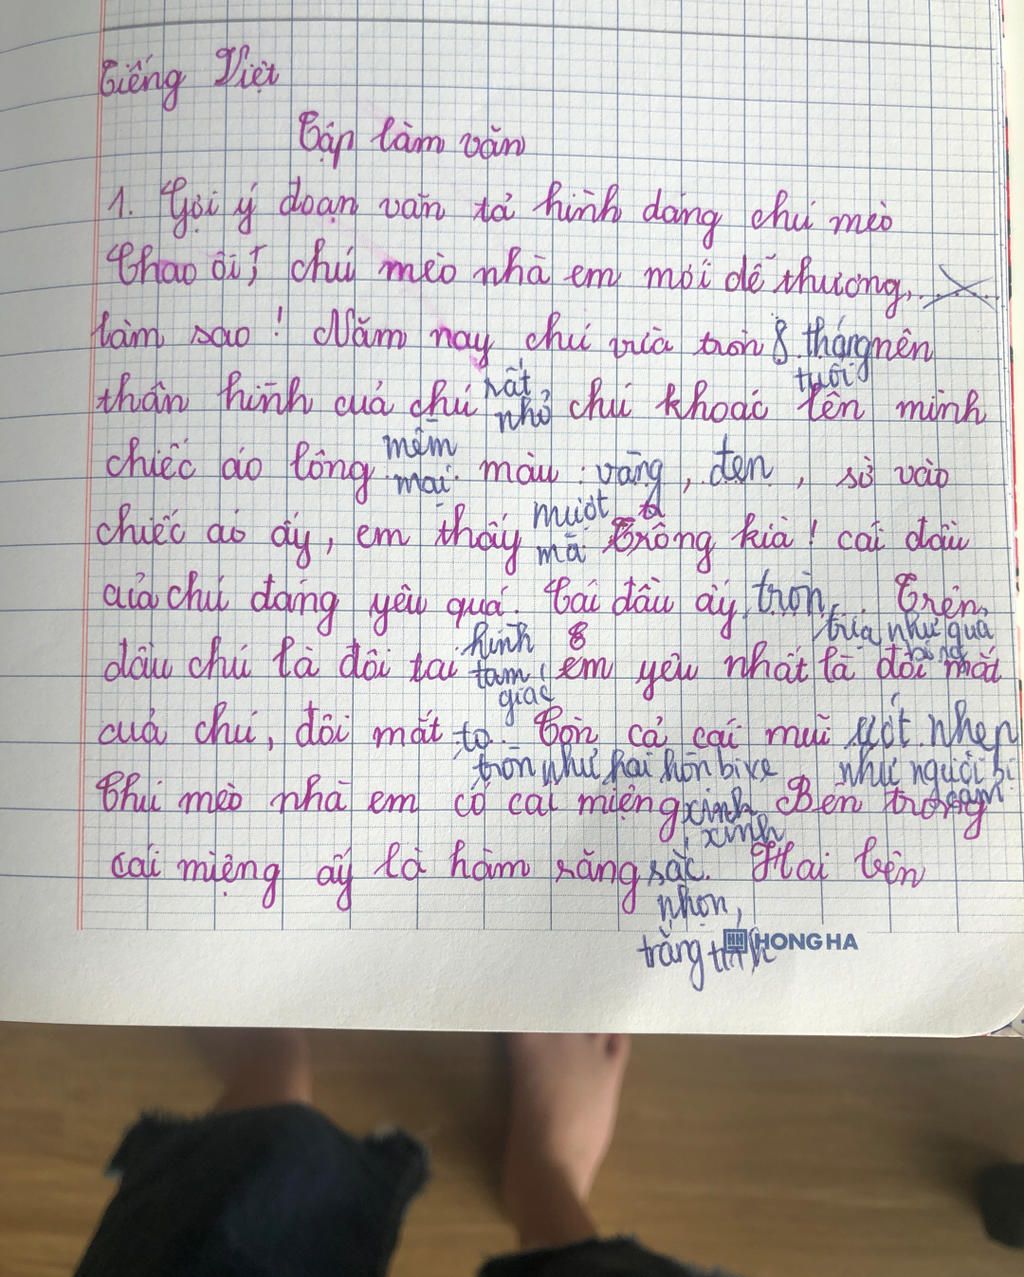 Tiếng Việt
Tập làm văn
1. Gợi ý đoạn văn tả hình dáng chú mèo
Chao ôi, chú mèo nhà em mới dễ thương,
làm sao! Năm nay chú vừa tròn 8 tháng nên
tuổi
thân hình của chú rất nhỏ, chú khoác lên mình
chiếc áo lông mềm mại màu vàng, đen, sờ vào
chiếc áo ấy, em thấy mượt mà. Trông kìa! cái đầu
của chú đáng yêu quá. Cái đầu ấy tròn, Trên
trịa như quả bóng
đầu chú là đôi tai hình tam giác, em yêu nhất là đôi mắt
của chú, đôi mắt to. Còn cả cái mũi ướt nhẹp
tròn như hai hòn bi ve như người bị cảm
Chú mèo nhà em có cái miệng xinh xinh Bên trong
cái miệng ấy là hàm răng sắc. Hai bên
nhọn,
trắng tinh
HONG HA